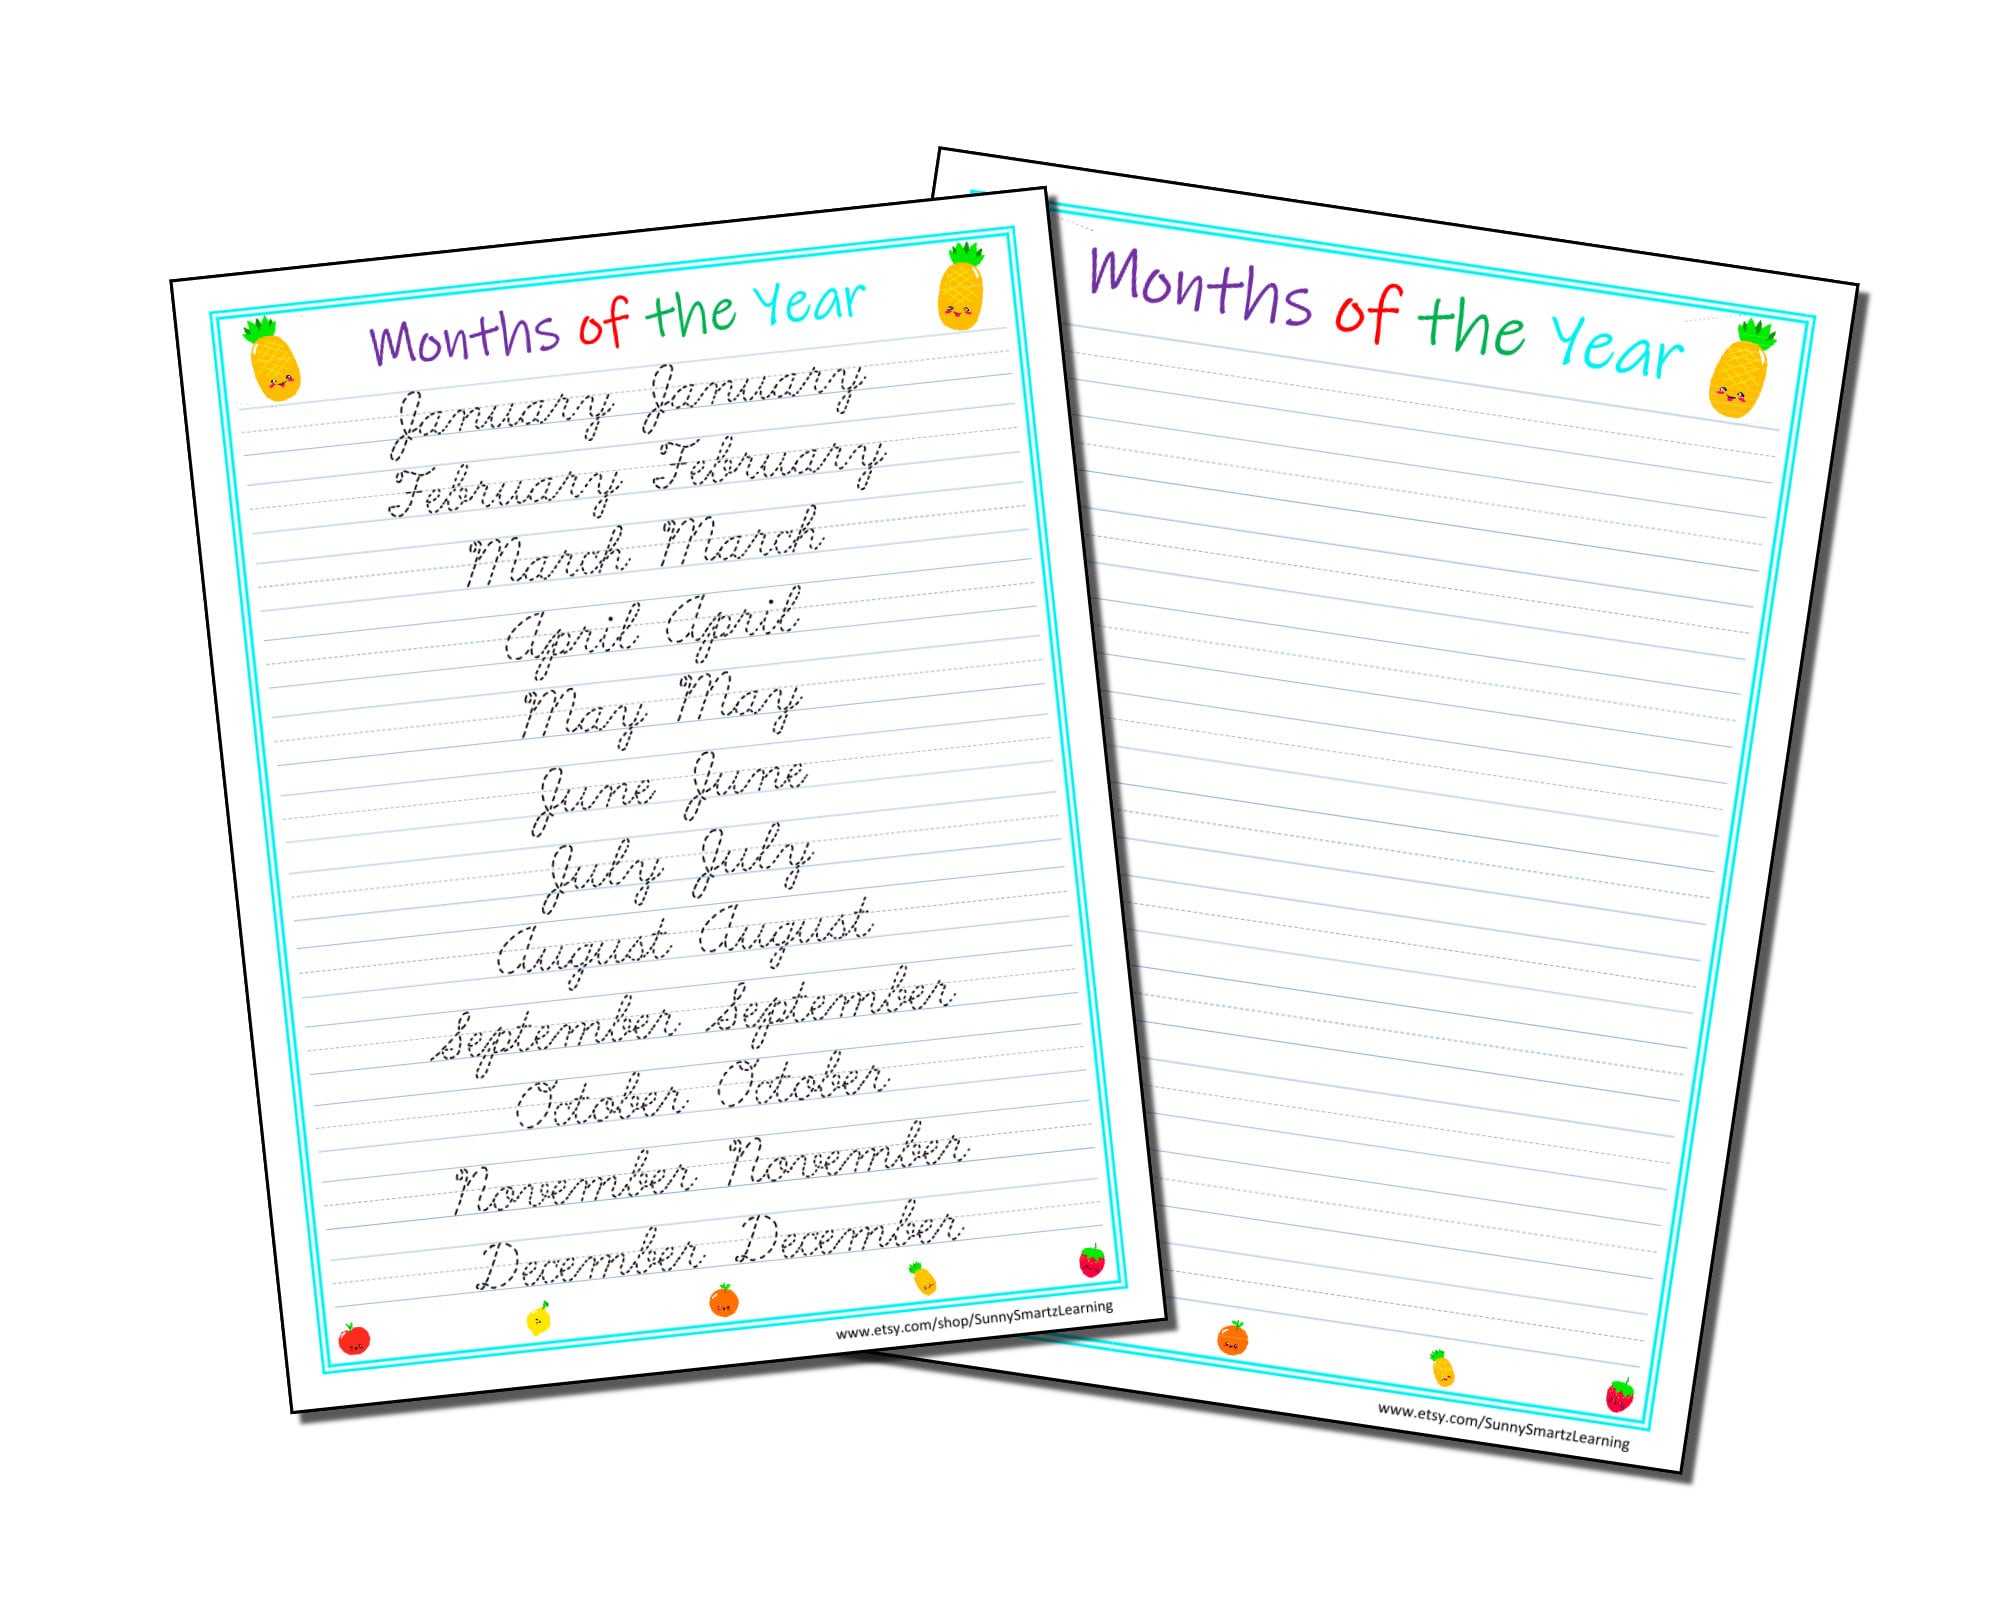 Months of the Year
January January
February February
March March
April April
May May
June June
July July
August August
September September
October October
November November
December December
www.etsy.com/shop/SunnySmartzLearning
Months of the Year
www.etsy.com/SunnySmartzLearning